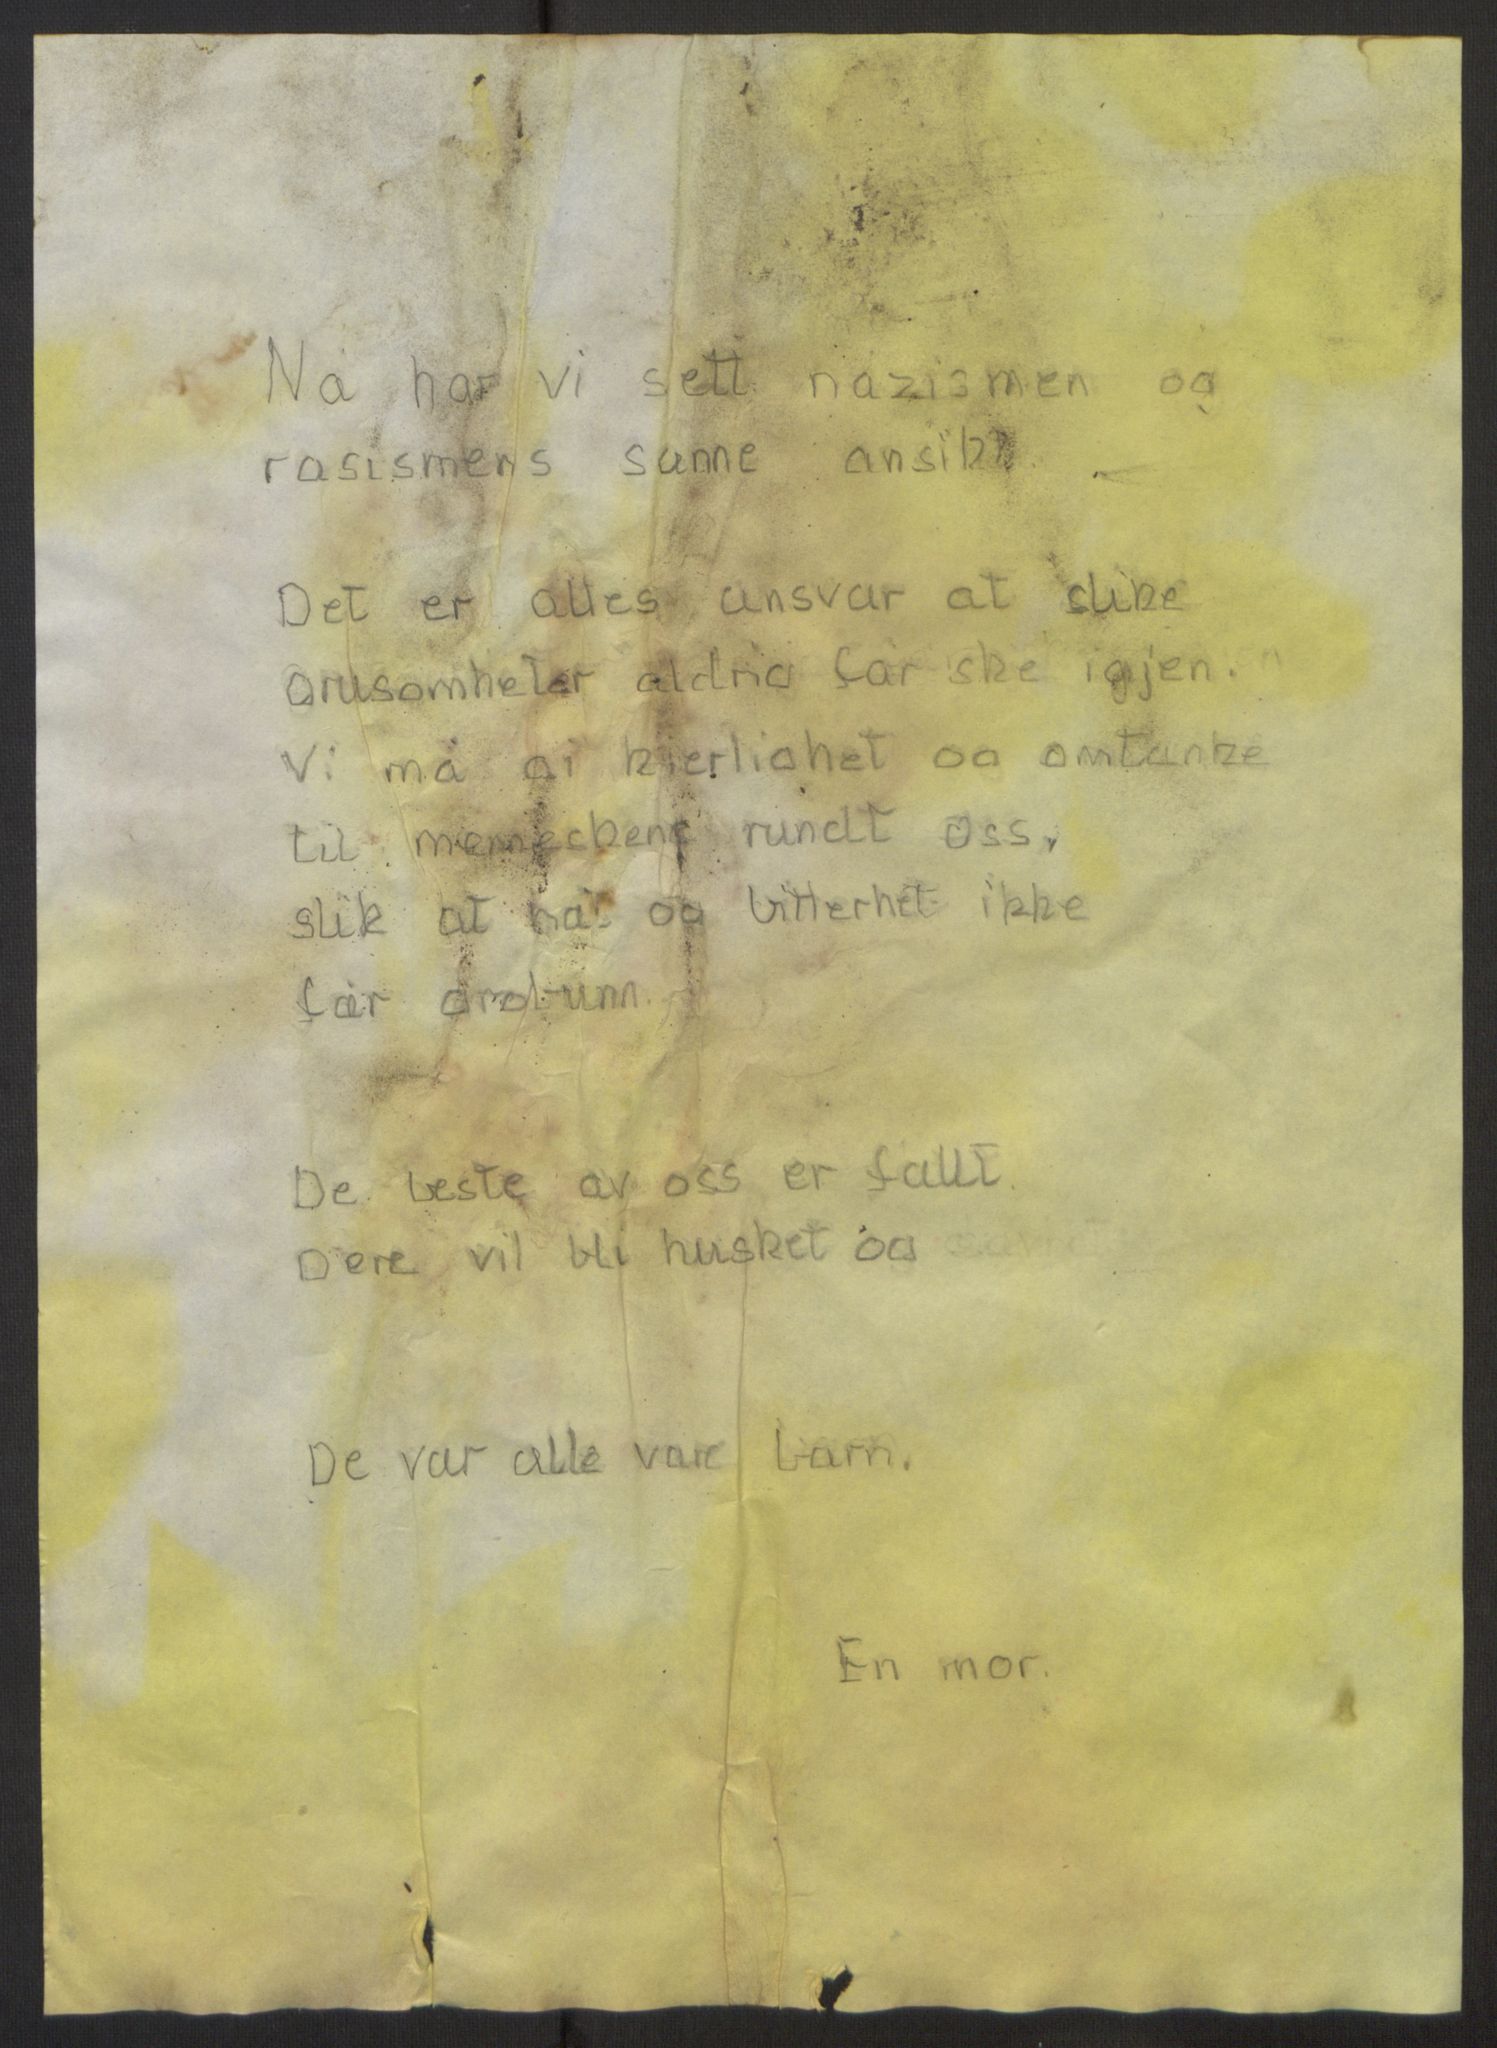 Nå har vi sett nazismen og
rasismens sanne ansikt.
Det er alles ansvar at slike
grusomheter aldrig får ske igjen.
Vi må gi kjerlighet og omtanke
til menneskene rundt oss,
slik at hat og bitterhet ikke
får grobunn.
De beste av oss er fallt.
Dere vil bli husket og savnet
De var alle våre barn.
En mor.